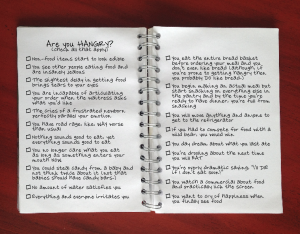 Are you HANGRY?
(check all that apply)
Non-food items start to look edible
You see other people eating food and
are insanely jealous
The slightest delay in getting food
brings tears to your eyes
You are incapable of articulating
your order when the waitress asks
what you'd like
The cries of a frustrated newborn
perfectly parallel your emotion
You have road rage like WAY worse
than usual
Nothing sounds good to eat, yet
everything sounds good to eat
You no longer care what you eat
as long as something enters your
mouth NOW
You could steal candy from a baby and
not think twice about it (not that
babies should have candy, but...)
No amount of water satisfies you
Everything and everyone irritates you
You eat the entire bread basket
before ordering your meal and you
don't even like bread (although, if
you're prone to getting hangry then
you probably DO like bread.)
You begin making an actual meal but
start snacking on everything else in
the pantry and by the time you're
ready to have dinner, you're full from
snacking
You mow down anything and anyone to
get to the refrigerator
If you had to compete for food with a
wild bear, you would win
You day dream about what you last ate
You're drooling about the next time
you will EAT
You're overly dramatic, saying "I'll DIE
if I don't eat soon!"
You watch a commercial about food
and practically lick the screen
You want to cry of happiness when
you finally see food